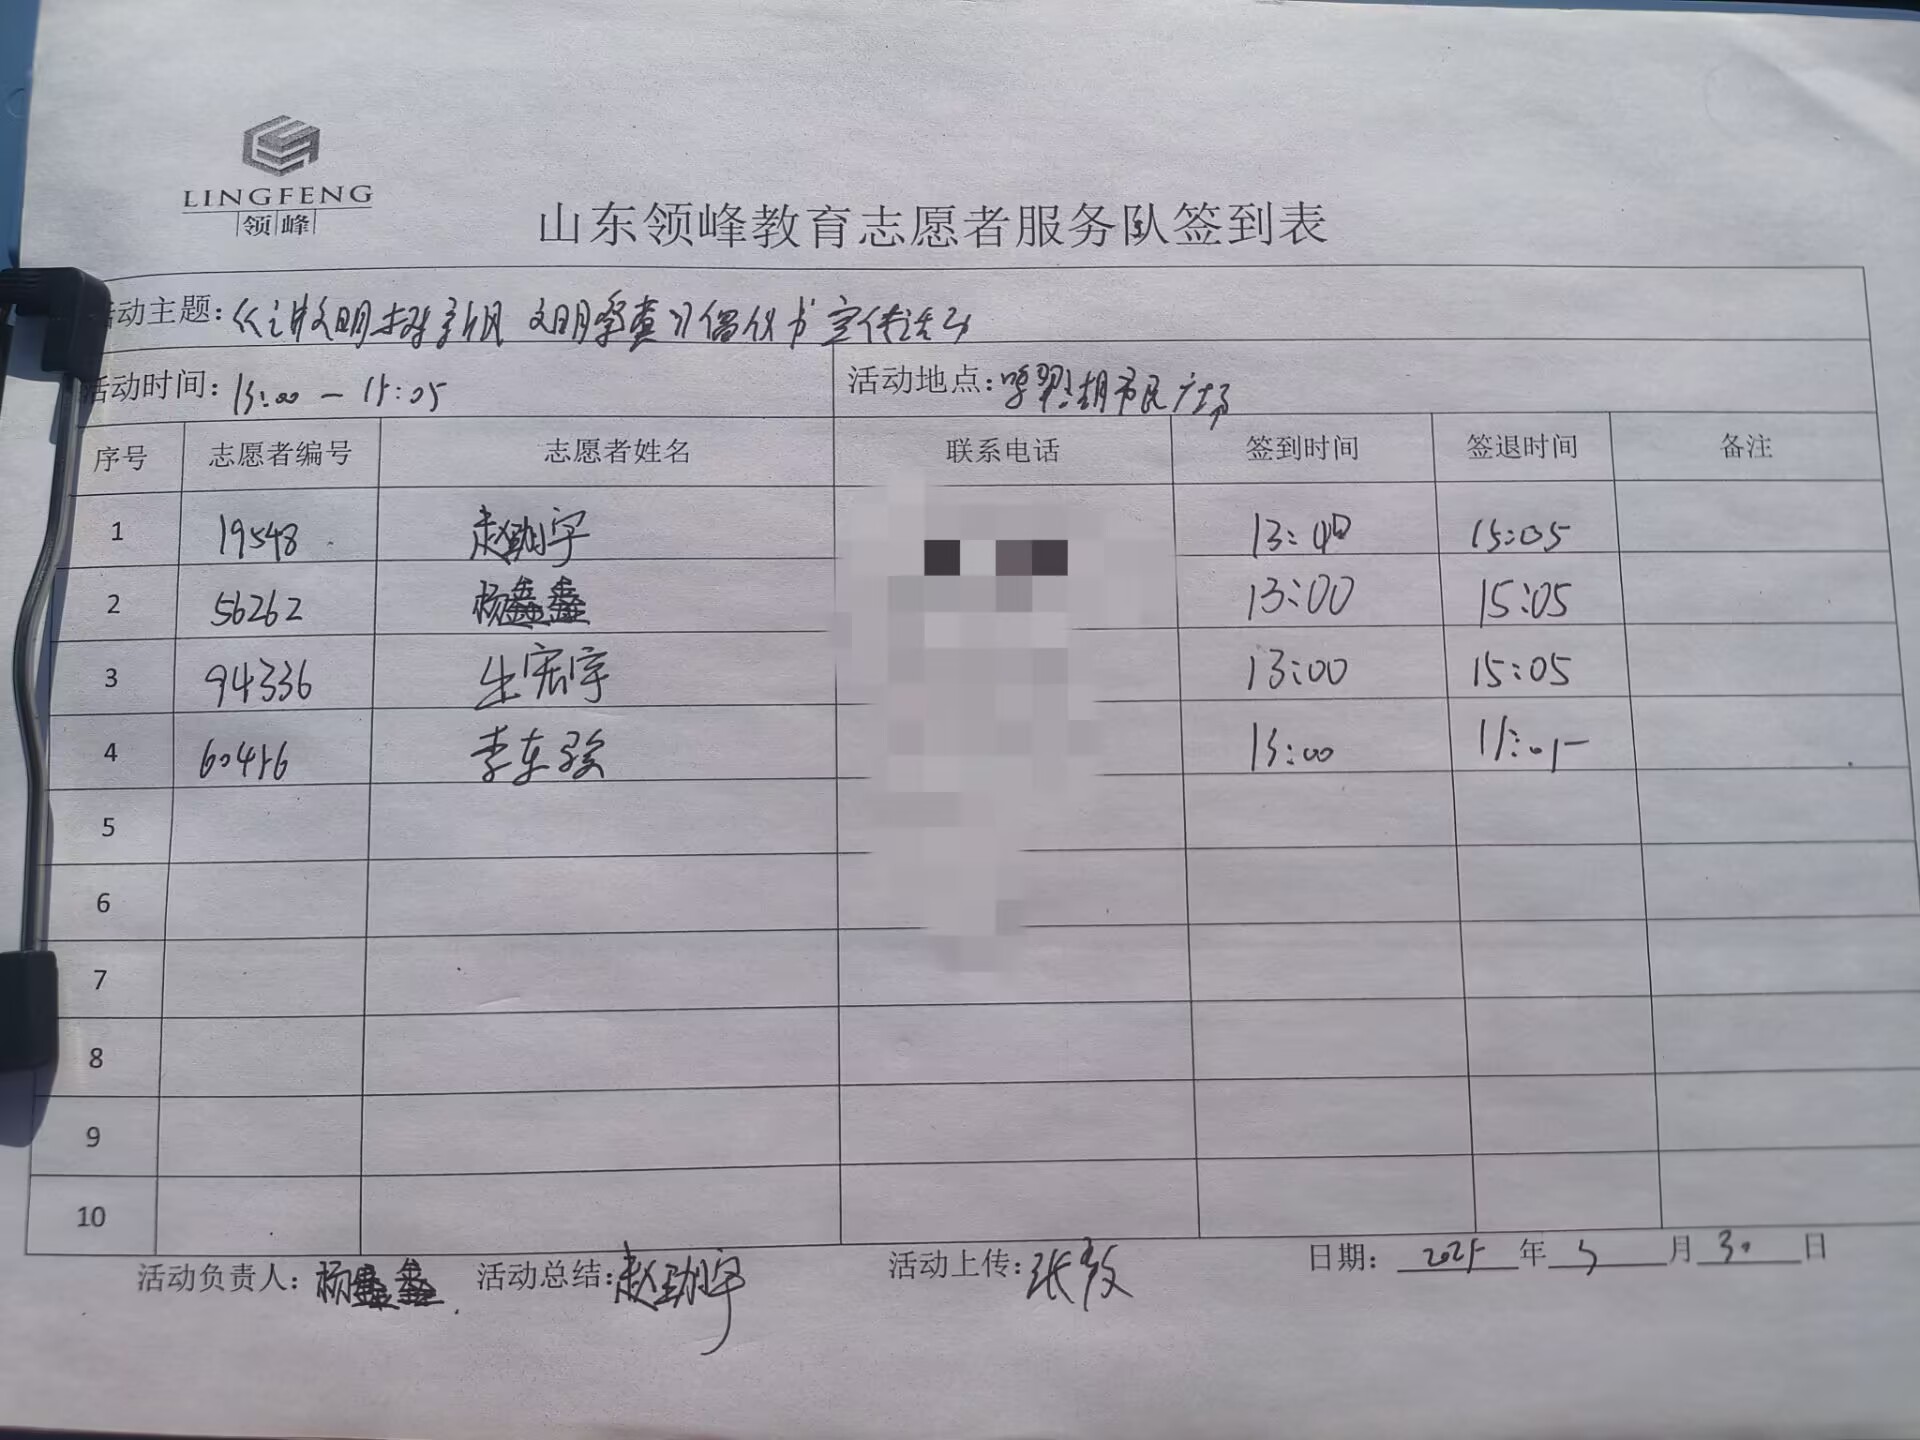 LINGFENG
领峰
山东领峰教育志愿者服务队签到表
活动主题:《讲文明 树新风 文明祭奠》倡议书宣传活动
活动时间: 13:00 — 15:05 活动地点: 市民广场
序号 志愿者编号 志愿者姓名 联系电话 签到时间 签退时间 备注
1 19548 赵劲宇 13:00 15:05
2 56262 杨鑫鑫 13:00 15:05
3 94336 牛宏宇 13:00 15:05
4 60456 李东骏 13:00 15:05
5
6
7
8
9
10
活动负责人: 杨鑫鑫 活动总结: 赵劲宇 活动上传: 张 日期: 2025 年 3 月 30 日